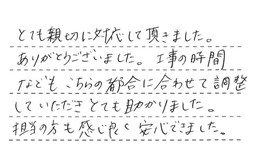 とても親切に対応して頂きました。
ありがとうございました。工事の時間
なども こちらの都合に合わせて調整
していただき とても助かりました。
担当の方も感じ良く 安心できました。